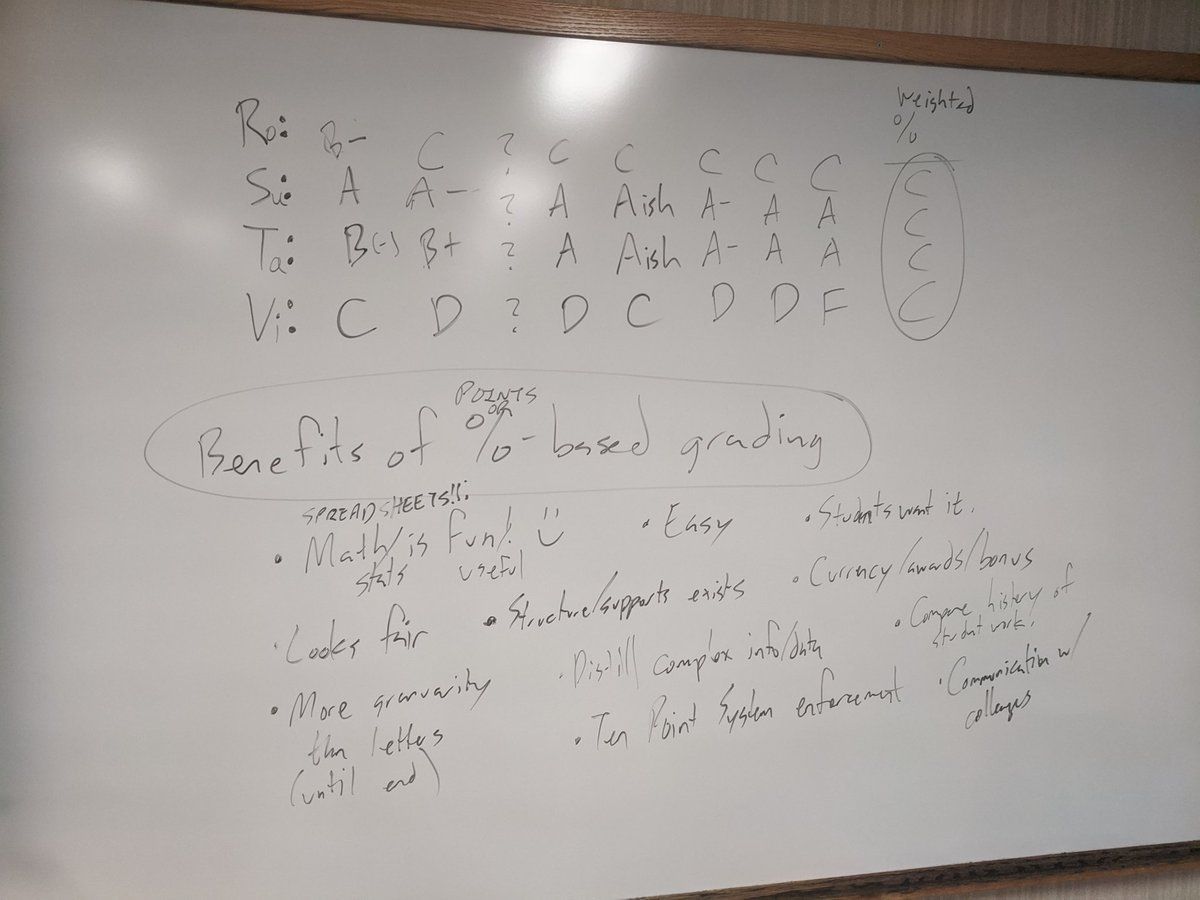 Weighted
%
Ro: B- C ? C C C C C C
Su: A A- ? A Aish A- A A C
Ta: B(-) B+ ? A Aish A- A A C
Vi: C D ? D C D D F C
POINTS
OR
Benefits of %-based grading
SPREADSHEETS!!
• Math/is fun! :)
stats useful
• Easy
• Students want it.
• Looks fair
• Structure/supports exists
• Currency/awards/bonus
• Compare history of
student work.
• More granuarity
than letters
(until end)
• Distill complex info/data
• Ten Point System enforcement
• Communication w/
colleages